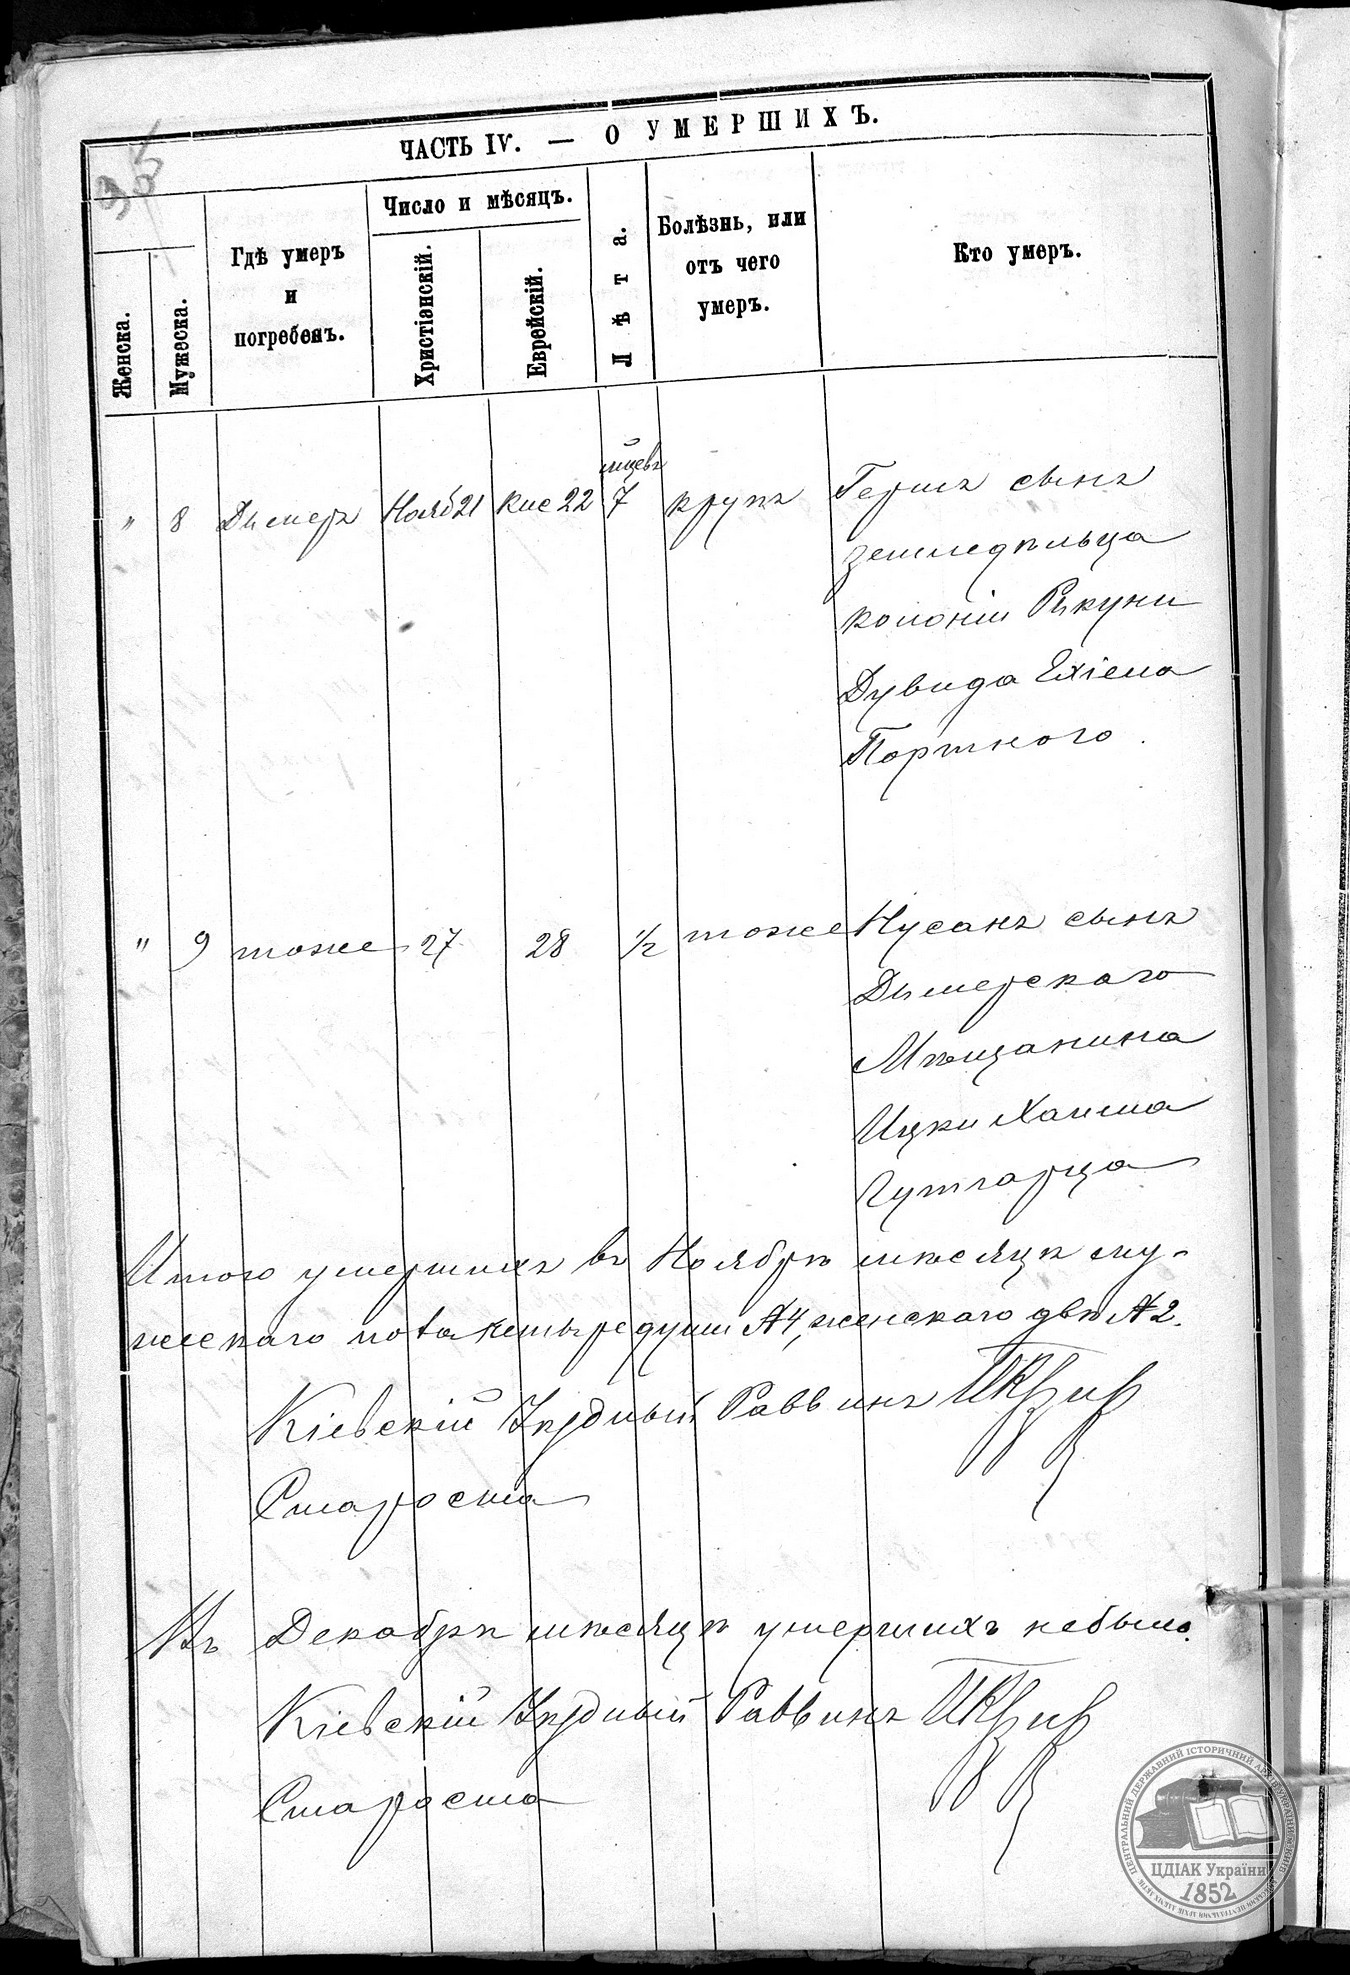 35
ЧАСТЬ IV. — О УМЕРШИХЪ.
Женска.
Мужеска.
Гдѣ умеръ
и
погребенъ.
Число и мѣсяцъ.
Христіанскій.
Еврейскій.
Лѣта.
Болѣзнь, или
отъ чего
умеръ.
Кто умеръ.
мцевъ
" 8 Дымеръ Нояб 21 Кис 22 7 крупъ Гершъ сынъ
земледѣльца
колоніи Рыкуни
Дувида Ехіела
Портного.
" 9 тоже 27 28 1/2 тоже Нусанъ сынъ
Дымерскаго
Мѣщанина
Ицки Хаима
Гутгарца
Итого умершихъ въ Ноябрѣ мѣсяцѣ му-
жескаго пола четыре души № 4, женскаго двѣ № 2.
Кіевскій Уѣздный Раввинъ
Староста
Въ Декабрѣ мѣсяцѣ умершихъ небыло.
Кіевскій Уѣздный Раввинъ
Староста
ЦЕНТРАЛЬНИЙ ДЕРЖАВНИЙ ІСТОРИЧНИЙ АРХІВ УКРАЇНИ, М. КИЇВ
ЦДІАК України
1852